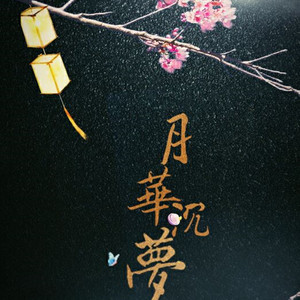 月華沉夢